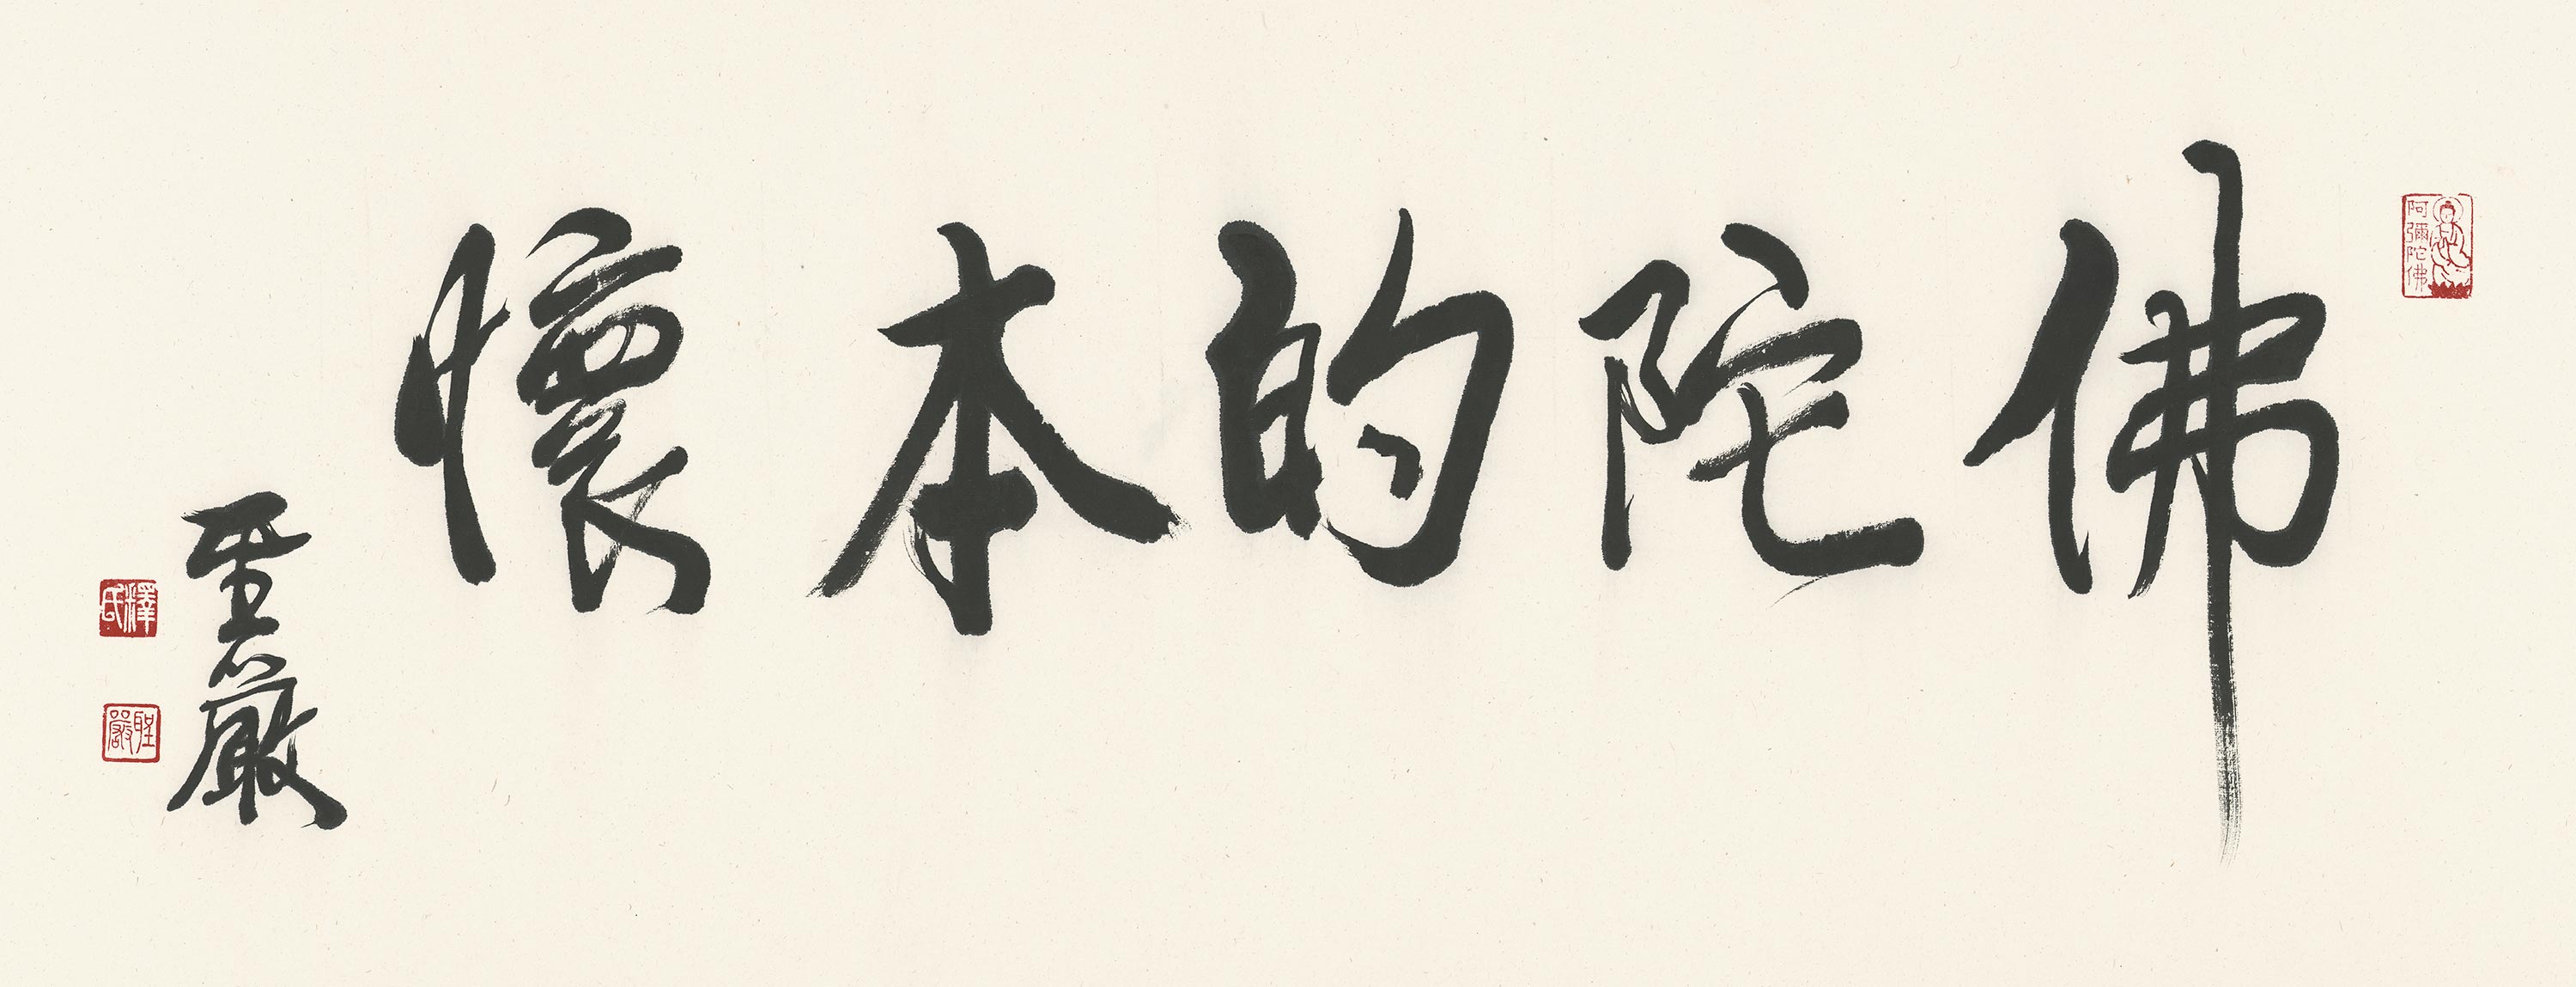 佛陀的本懷
聖嚴
阿彌陀佛
澤氏
聖嚴